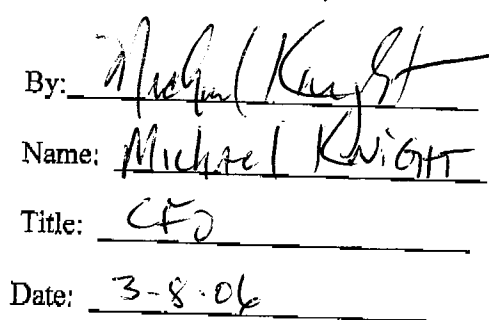 By: Michael Knight
Name: Michael KNiGHT
Title: CFO
Date: 3-8-06